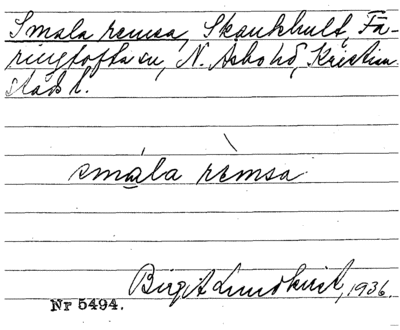 Smala remsa, Skånkhult, Fä-
ringtofta sn, N. Åsbo hd, Kristian
stads l.
smála rèmsa
Birgit Lundkvist, 1936.
Nr 5494.